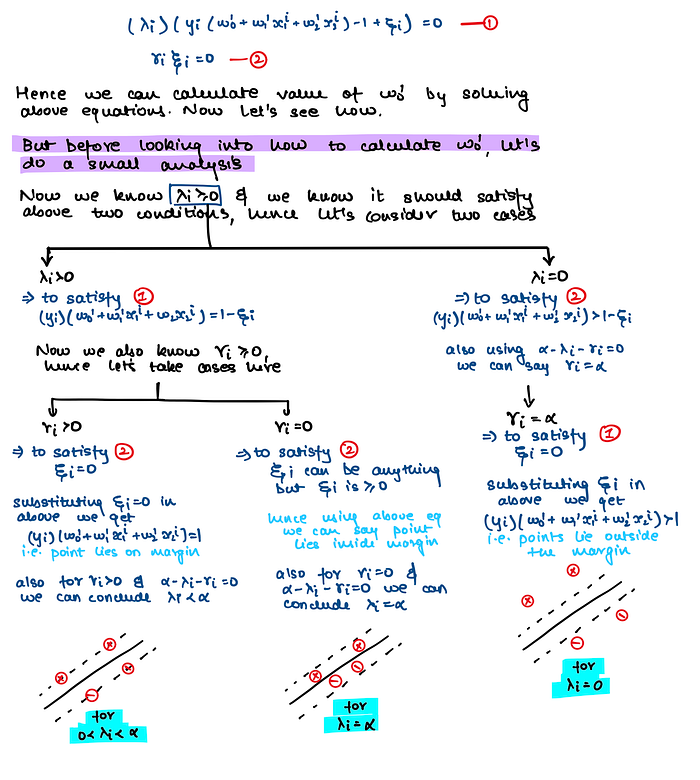 (λi) ( yi (w₀' + w₁'x₁ⁱ + w₂'x₂ⁱ) - 1 + ξi) = 0 — ①
ri ξi = 0 — ②
Hence we can calculate value of w₀' by solving
above equations. Now let's see how.
But before looking into how to calculate w₀', let's
do a small analysis
Now we know λi ≥ 0 & we know it should satisfy
above two conditions, hence let's consider two cases
λi > 0
⇒ to satisfy ①
(yi)(w₀' + w₁'x₁ⁱ + w₂x₂ⁱ) = 1 - ξi
Now we also know ri ≥ 0,
hence let's take cases here
ri > 0
⇒ to satisfy ②
ξi = 0
substituting ξi = 0 in
above we get
(yi) [w₀' + w₁'x₁ⁱ + w₂'x₂ⁱ] = 1
i.e. point lies on margin
also for ri > 0 & α - λi - ri = 0
we can conclude λi < α
for
0 < λi < α
ri = 0
⇒ to satisfy ②
ξi can be anything
but ξi is ≥ 0
hence using above eq
we can say point
lies inside margin
also for ri = 0 &
α - λi - ri = 0 we can
conclude λi = α
for
λi = α
λi = 0
⇒ to satisfy ②
(yi)(w₀' + w₁'x₁ⁱ + w₂'x₂ⁱ) > 1 - ξi
also using α - λi - ri = 0
we can say ri = α
ri = α
⇒ to satisfy ①
ξi = 0
substituting ξi in
above we get
(yi)(w₀' + w₁'x₁ⁱ + w₂'x₂ⁱ) > 1
i.e. points lie outside
the margin
for
λi = 0